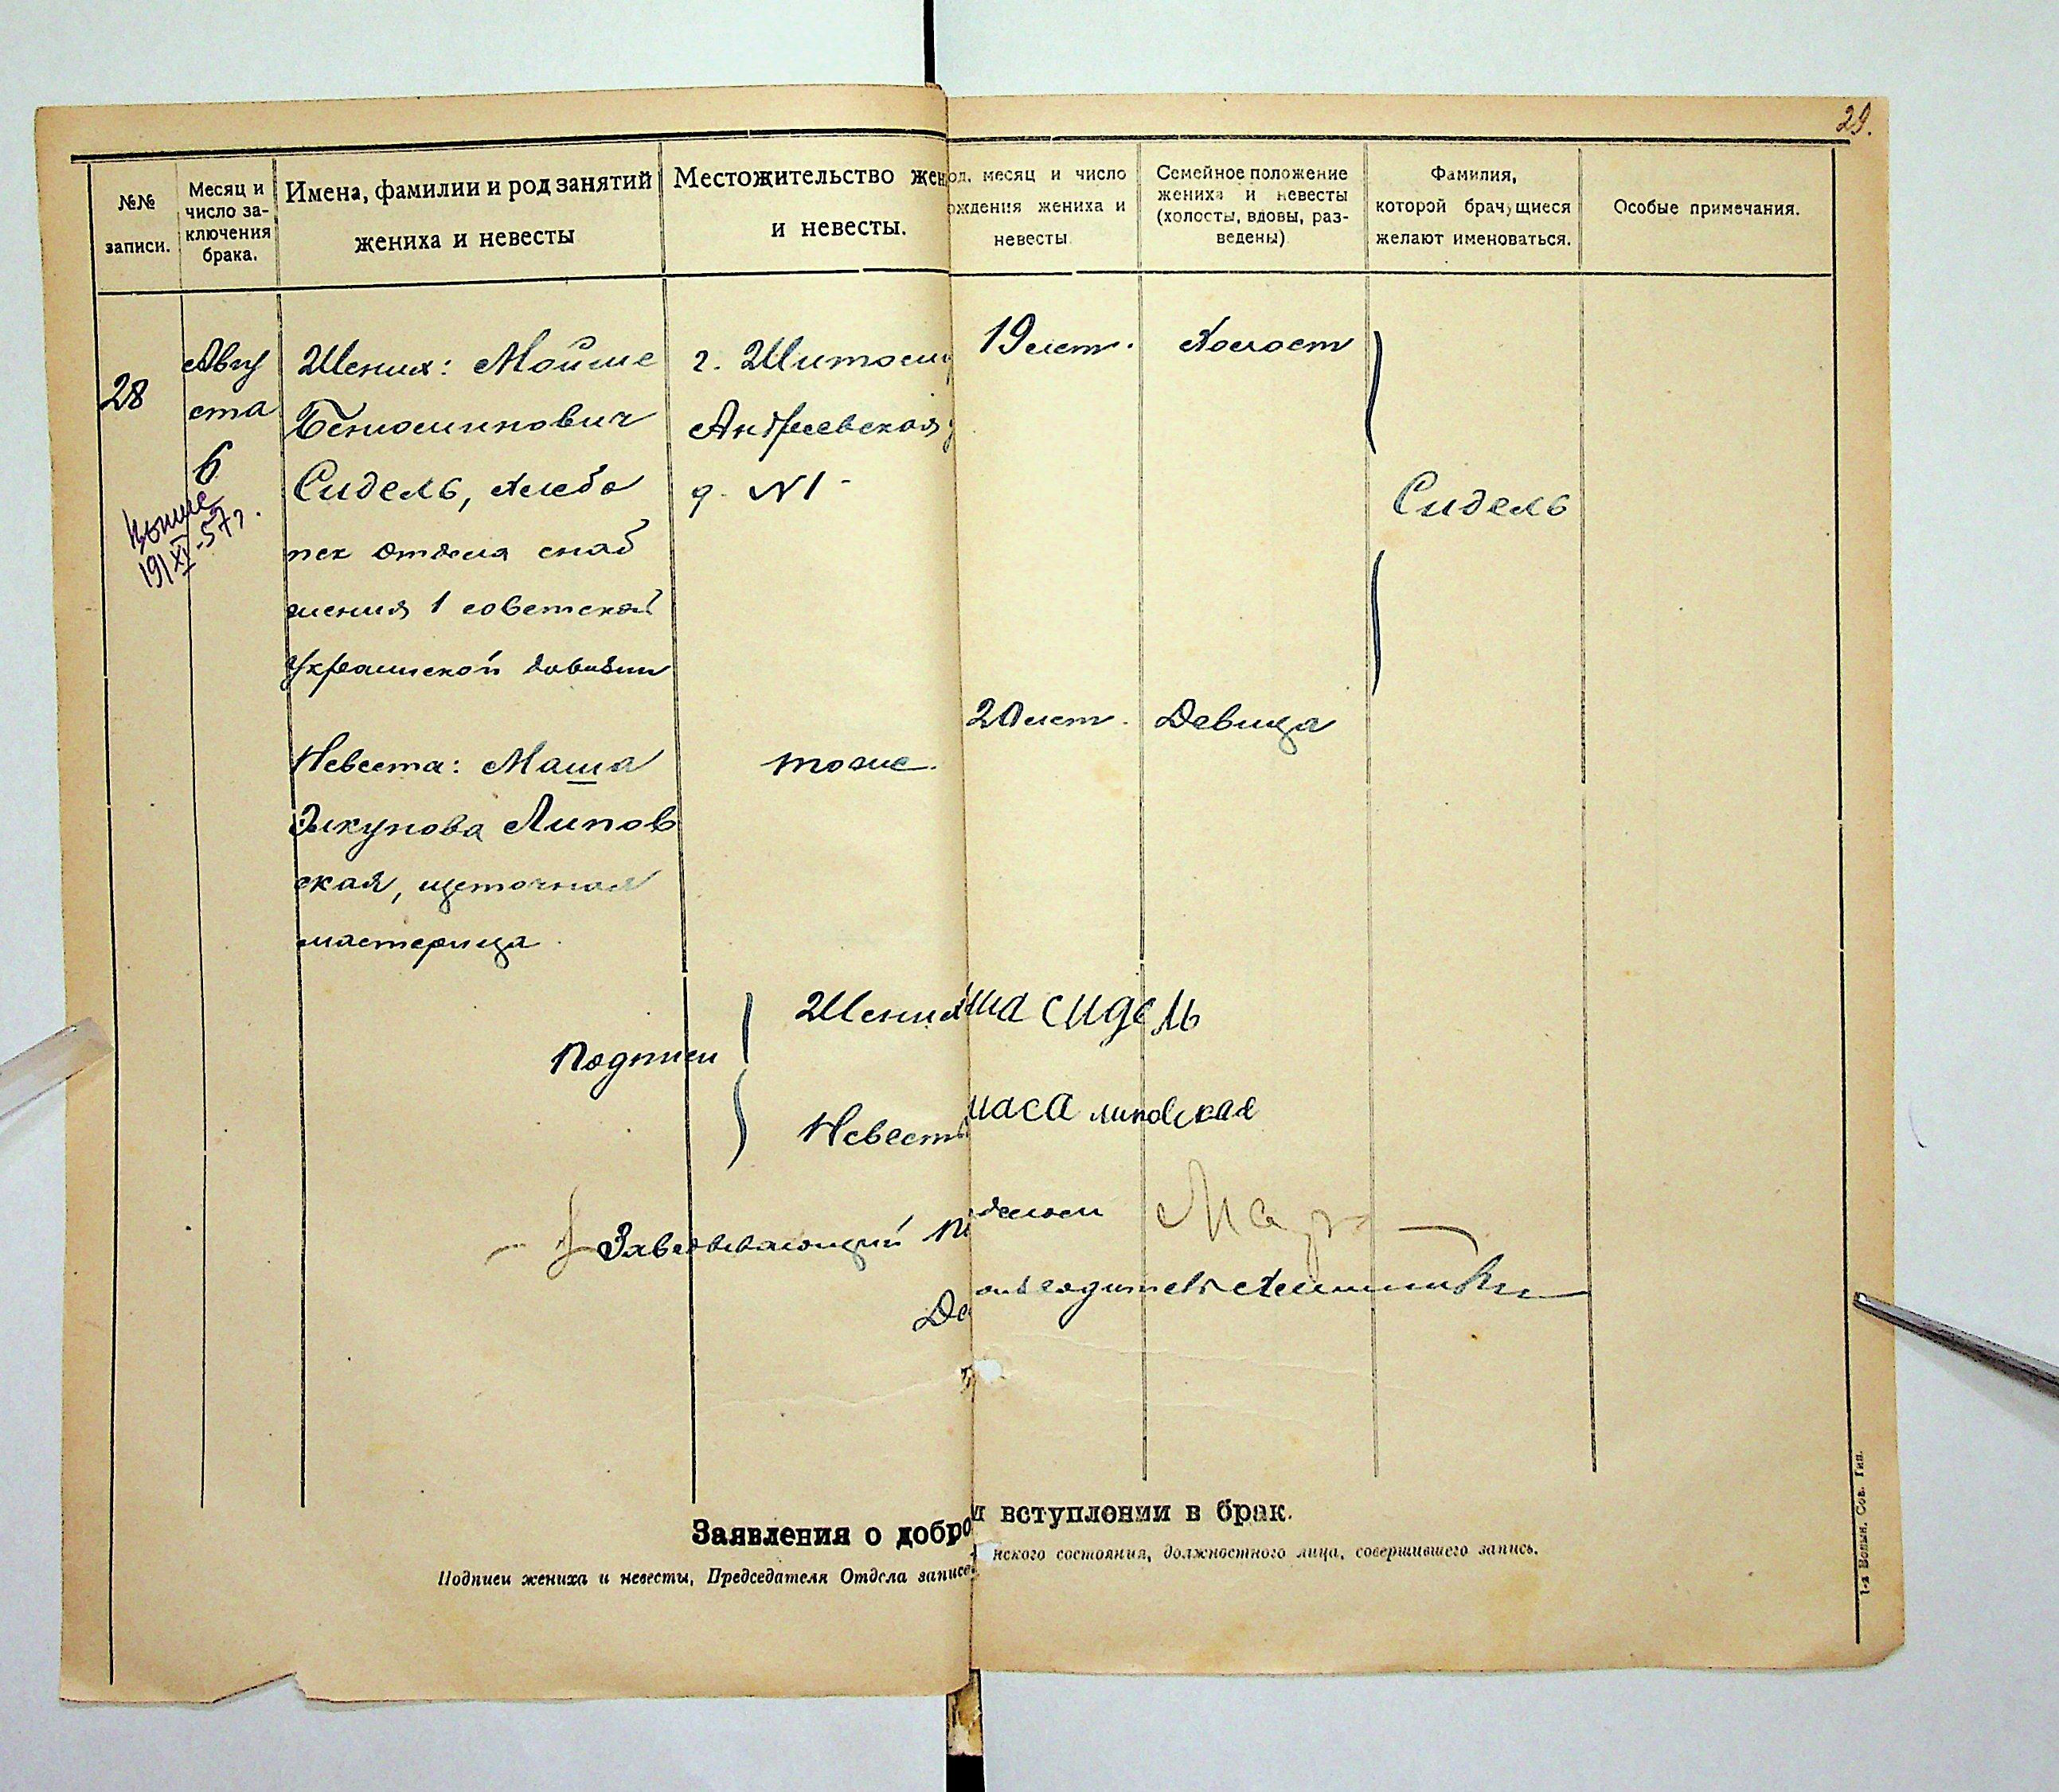 29.
№№ записи.
Месяц и число заключения брака.
Имена, фамилии и род занятий жениха и невесты
Местожительство жен
и невесты.
од, месяц и число
ождения жениха и
невесты
Семейное положение
жениха и невесты
(холосты, вдовы, раз-
ведены)
Фамилия,
которой брачущиеся
желают именоваться.
Особые примечания.
28
Авгу
ста
6
19/XI-57г.
Жених: Мойше
Бениоминович
Сидель, хлебо
пек отдела снаб
жения 1 советской
Украинской дивизии
г. Житоми
Андреевская
д. N1-
19 лет.
Холост
Сидель
Невеста: Маша
Элкунова Липов
ская, щеточная
мастерица.
тоже.
20 лет.
Девица
Подписи
Жених
ша сидель
Невест
маса липовская
Заведывающий
Де
Заявления о добро
и вступлении в брак.
Подписи жениха и невесты, Председателя Отдела записе
нского состояния, должностного лица, совершившего запись.
1-я Волын. Сов. Тип.